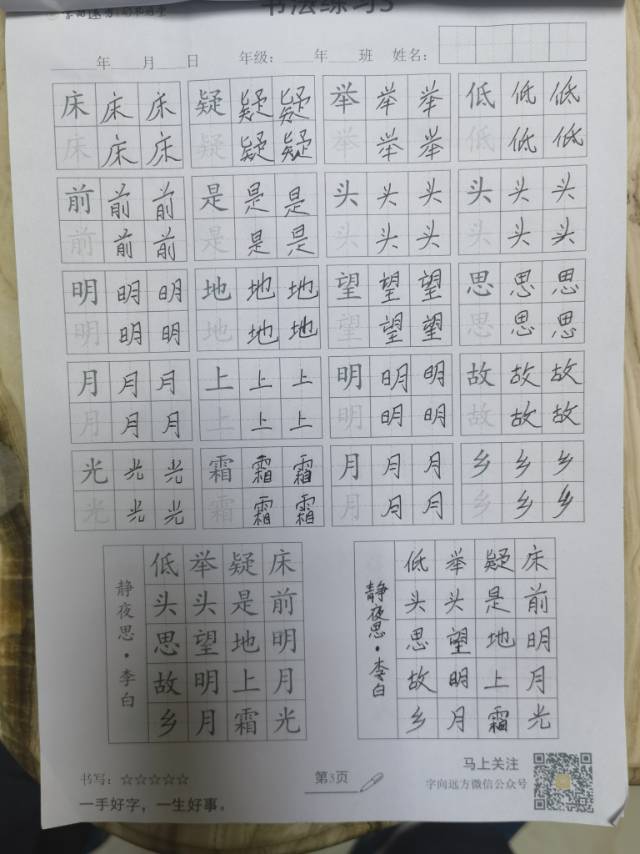 书法练习3
年 月 日 年级： 年 班 姓名：
床 床 床 疑 疑 疑 举 举 举 低 低 低
床 床 床 疑 疑 疑 举 举 举 低 低 低
前 前 前 是 是 是 头 头 头 头 头 头
前 前 前 是 是 是 头 头 头 头 头 头
明 明 明 地 地 地 望 望 望 思 思 思
明 明 明 地 地 地 望 望 望 思 思 思
月 月 月 上 上 上 明 明 明 故 故 故
月 月 月 上 上 上 明 明 明 故 故 故
光 光 光 霜 霜 霜 月 月 月 乡 乡 乡
光 光 光 霜 霜 霜 月 月 月 乡 乡 乡
静夜思·李白
床前明月光
疑是地上霜
举头望明月
低头思故乡
静夜思·李白
床前明月光
疑是地上霜
举头望明月
低头思故乡
书写：☆☆☆☆☆
一手好字，一生好事。
第3页
马上关注
字向远方微信公众号